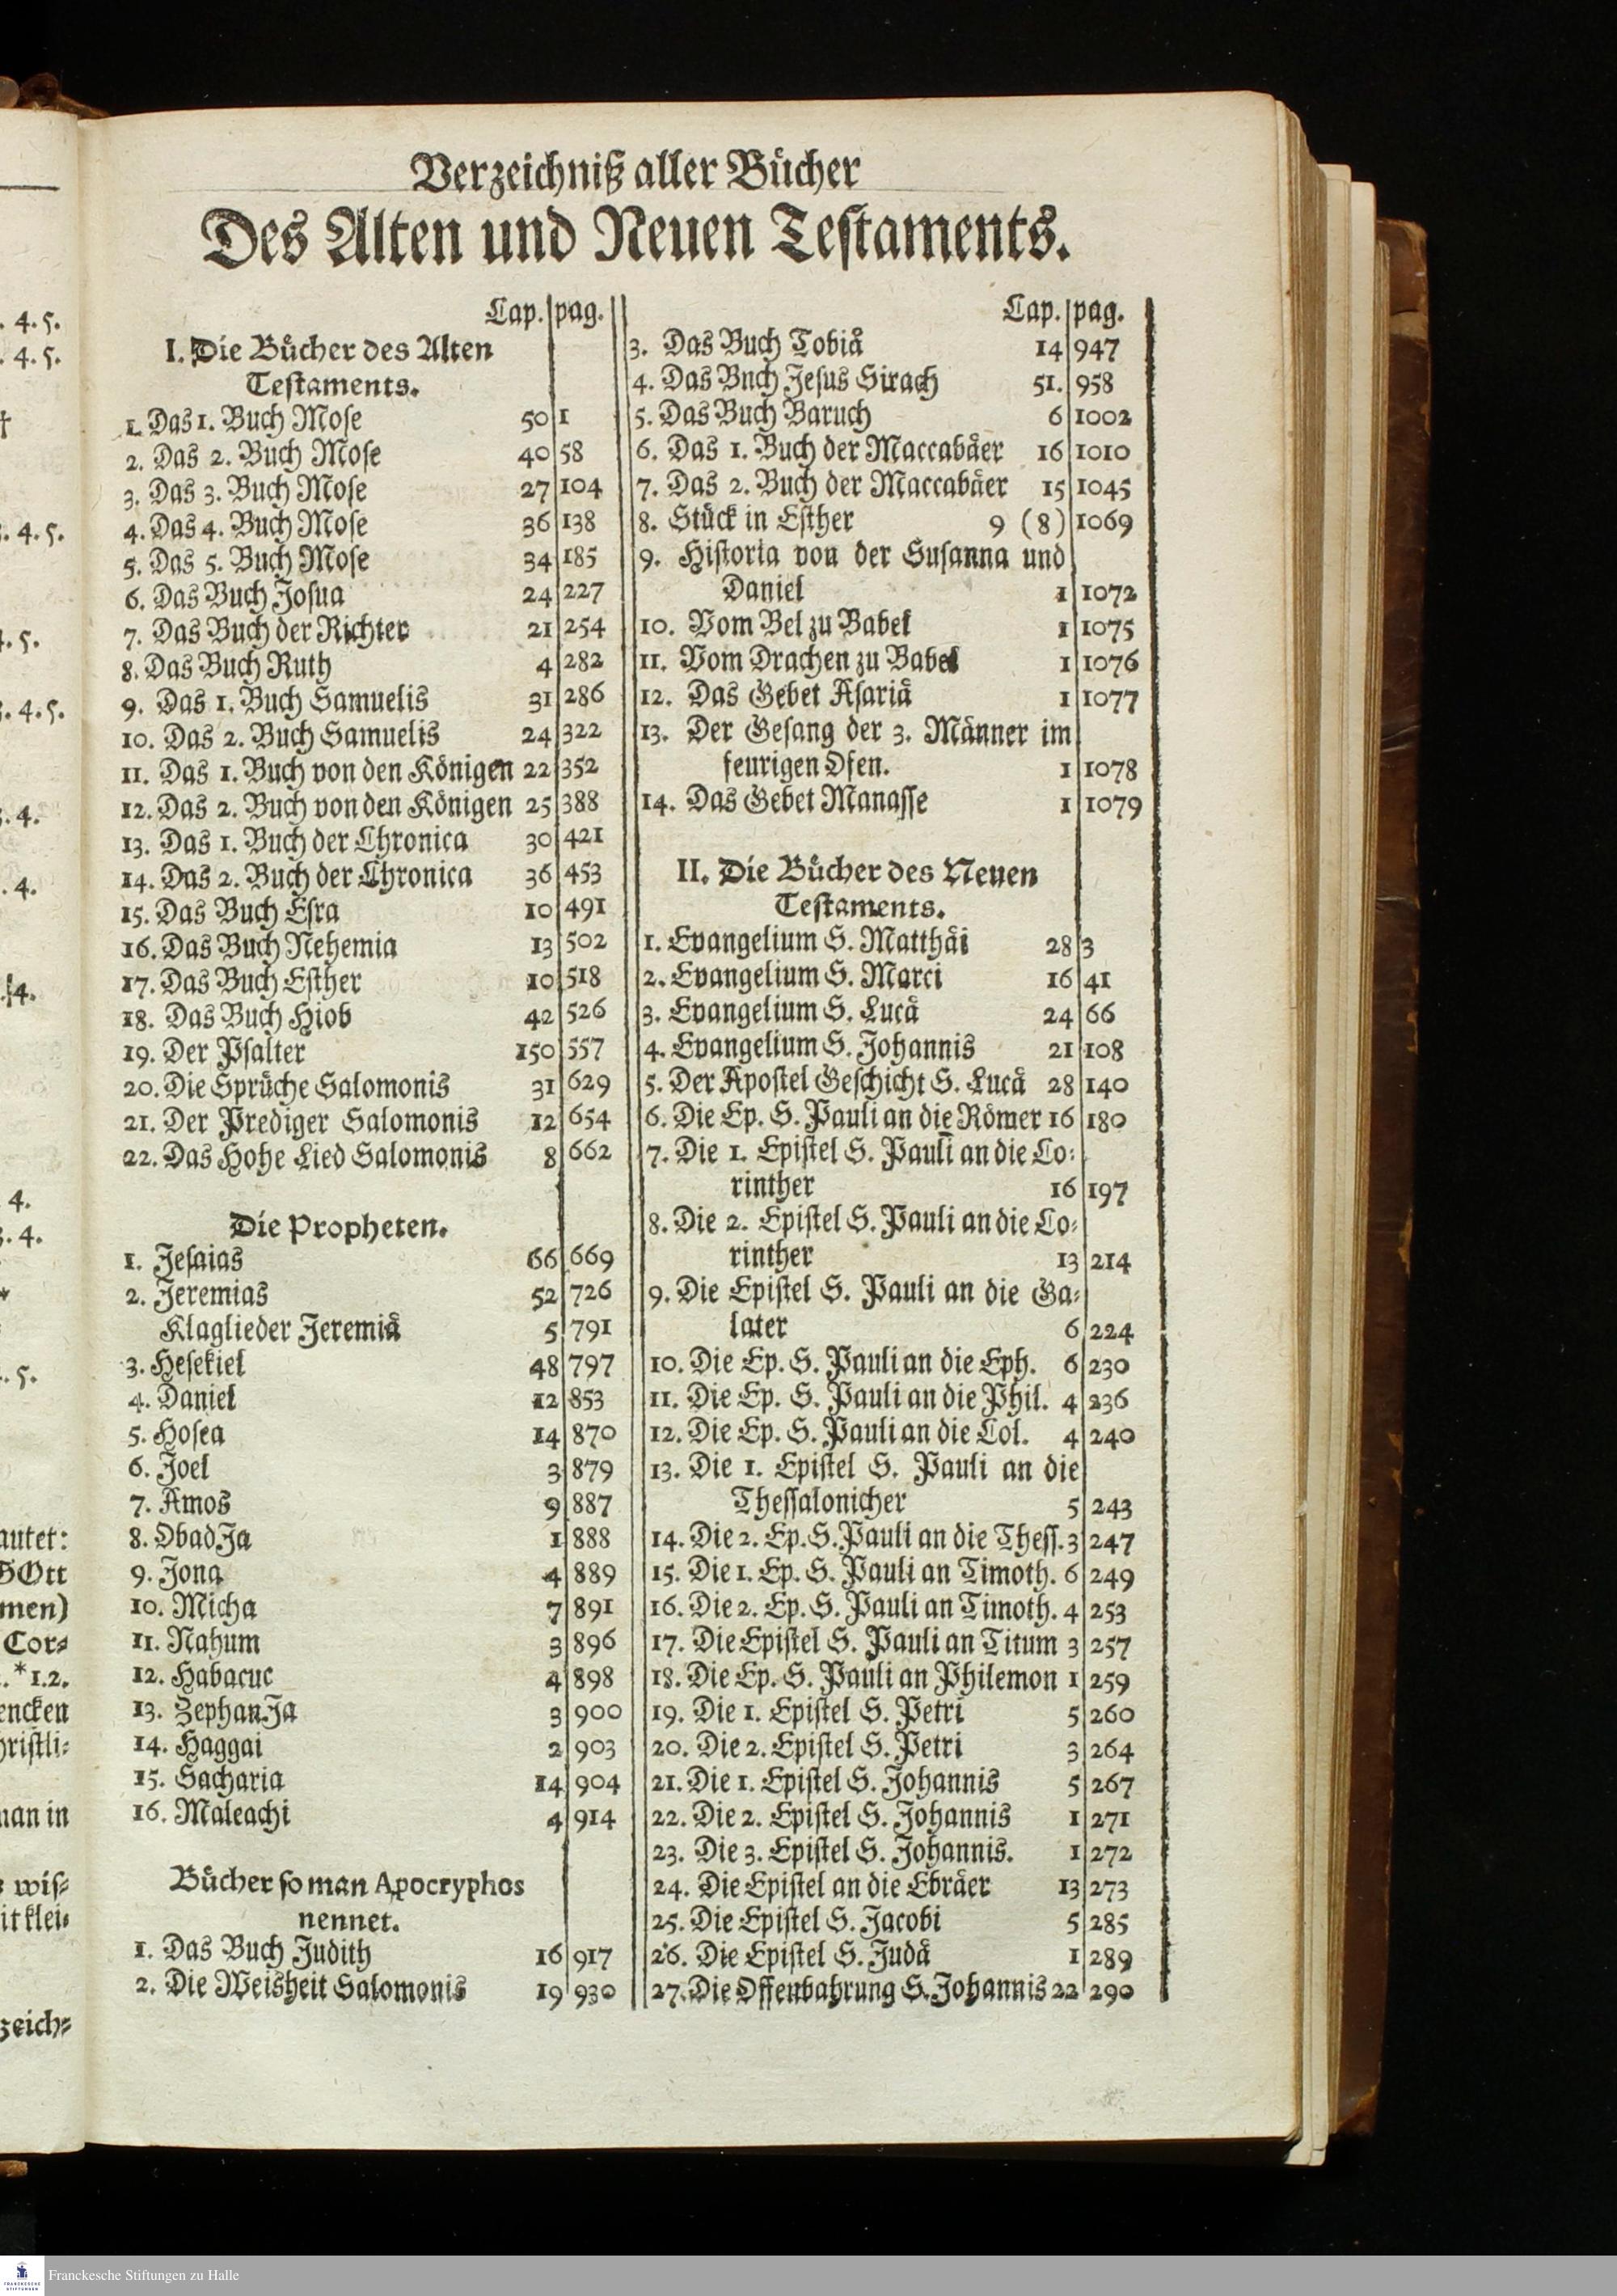 Verzeichniß aller Bücher
Des Alten und Neuen Testaments.
Cap. pag.
I. Die Bücher des Alten
Testaments.
1. Das 1. Buch Mose 50 1
2. Das 2. Buch Mose 40 58
3. Das 3. Buch Mose 27 104
4. Das 4. Buch Mose 36 138
5. Das 5. Buch Mose 34 185
6. Das Buch Josua 24 227
7. Das Buch der Richter 21 254
8. Das Buch Ruth 4 282
9. Das 1. Buch Samuelis 31 286
10. Das 2. Buch Samuelis 24 322
11. Das 1. Buch von den Königen 22 352
12. Das 2. Buch von den Königen 25 388
13. Das 1. Buch der Chronica 30 421
14. Das 2. Buch der Chronica 36 453
15. Das Buch Esra 10 491
16. Das Buch Nehemia 13 502
17. Das Buch Esther 10 518
18. Das Buch Hiob 42 526
19. Der Psalter 150 557
20. Die Sprüche Salomonis 31 629
21. Der Prediger Salomonis 12 654
22. Das Hohe Lied Salomonis 8 662
Die Propheten.
1. Jesaias 66 669
2. Jeremias 52 726
Klaglieder Jeremiä 5 791
3. Hesekiel 48 797
4. Daniel 12 853
5. Hosea 14 870
6. Joel 3 879
7. Amos 9 887
8. ObadJa 1 888
9. Jona 4 889
10. Micha 7 891
11. Nahum 3 896
12. Habacuc 4 898
13. ZephanJa 3 900
14. Haggai 2 903
15. Sacharia 14 904
16. Maleachi 4 914
Bücher so man Apocryphos
nennet.
1. Das Buch Judith 16 917
2. Die Weisheit Salomonis 19 930
Cap. pag.
3. Das Buch Tobiä 14 947
4. Das Bnch Jesus Sirach 51. 958
5. Das Buch Baruch 6 1002
6. Das 1. Buch der Maccabäer 16 1010
7. Das 2. Buch der Maccabäer 15 1045
8. Stück in Esther 9 (8) 1069
9. Historia von der Susanna und
Daniel 1 1072
10. Vom Bel zu Babel 1 1075
11. Vom Drachen zu Babel 1 1076
12. Das Gebet Asariä 1 1077
13. Der Gesang der 3. Männer im
feurigen Ofen. 1 1078
14. Das Gebet Manasse 1 1079
II. Die Bücher des Neuen
Testaments.
1. Evangelium S. Matthäi 28 3
2. Evangelium S. Marci 16 41
3. Evangelium S. Lucä 24 66
4. Evangelium S. Johannis 21 108
5. Der Apostel Geschicht S. Lucä 28 140
6. Die Ep. S. Pauli an die Römer 16 180
7. Die 1. Epistel S. Pauli an die Co-
rinther 16 197
8. Die 2. Epistel S. Pauli an die Co-
rinther 13 214
9. Die Epistel S. Pauli an die Ga-
later 6 224
10. Die Ep. S. Pauli an die Eph. 6 230
11. Die Ep. S. Pauli an die Phil. 4 236
12. Die Ep. S. Pauli an die Col. 4 240
13. Die 1. Epistel S. Pauli an die
Thessalonicher 5 243
14. Die 2. Ep. S. Pauli an die Thess. 3 247
15. Die 1. Ep. S. Pauli an Timoth. 6 249
16. Die 2. Ep. S. Pauli an Timoth. 4 253
17. Die Epistel S. Pauli an Titum 3 257
18. Die Ep. S. Pauli an Philemon 1 259
19. Die 1. Epistel S. Petri 5 260
20. Die 2. Epistel S. Petri 3 264
21. Die 1. Epistel S. Johannis 5 267
22. Die 2. Epistel S. Johannis 1 271
23. Die 3. Epistel S. Johannis. 1 272
24. Die Epistel an die Ebräer 13 273
25. Die Epistel S. Jacobi 5 285
26. Die Epistel S. Judä 1 289
27. Die Offenbahrung S. Johannis 22 290
Franckesche Stiftungen zu Halle